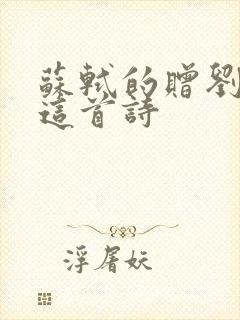 蘇軾的贈劉
這首詩
浮屠妖